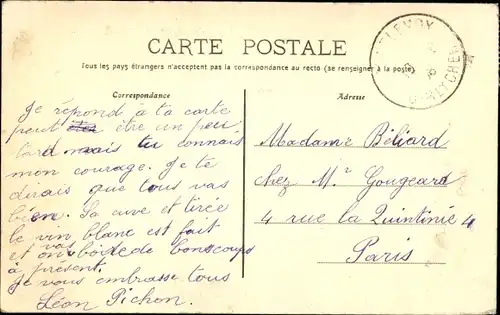 CARTE POSTALE
Tous les pays étrangers n'acceptent pas la correspondance au recto (se renseigner à la poste)
Correspondance
Adresse
Je répond à ta carte
peut être un peu
tard mais tu connais
mon courage. Je te
dirais que tous vas
bien. Sa cuve et tirée
le vin blanc est fait
et on vas boire de bons coups
à présent.
Je vous embrasse tous
Léon Pichon.
Madame Béliard
chez Mr Gougeard
4 rue la Quintinie 4
Paris